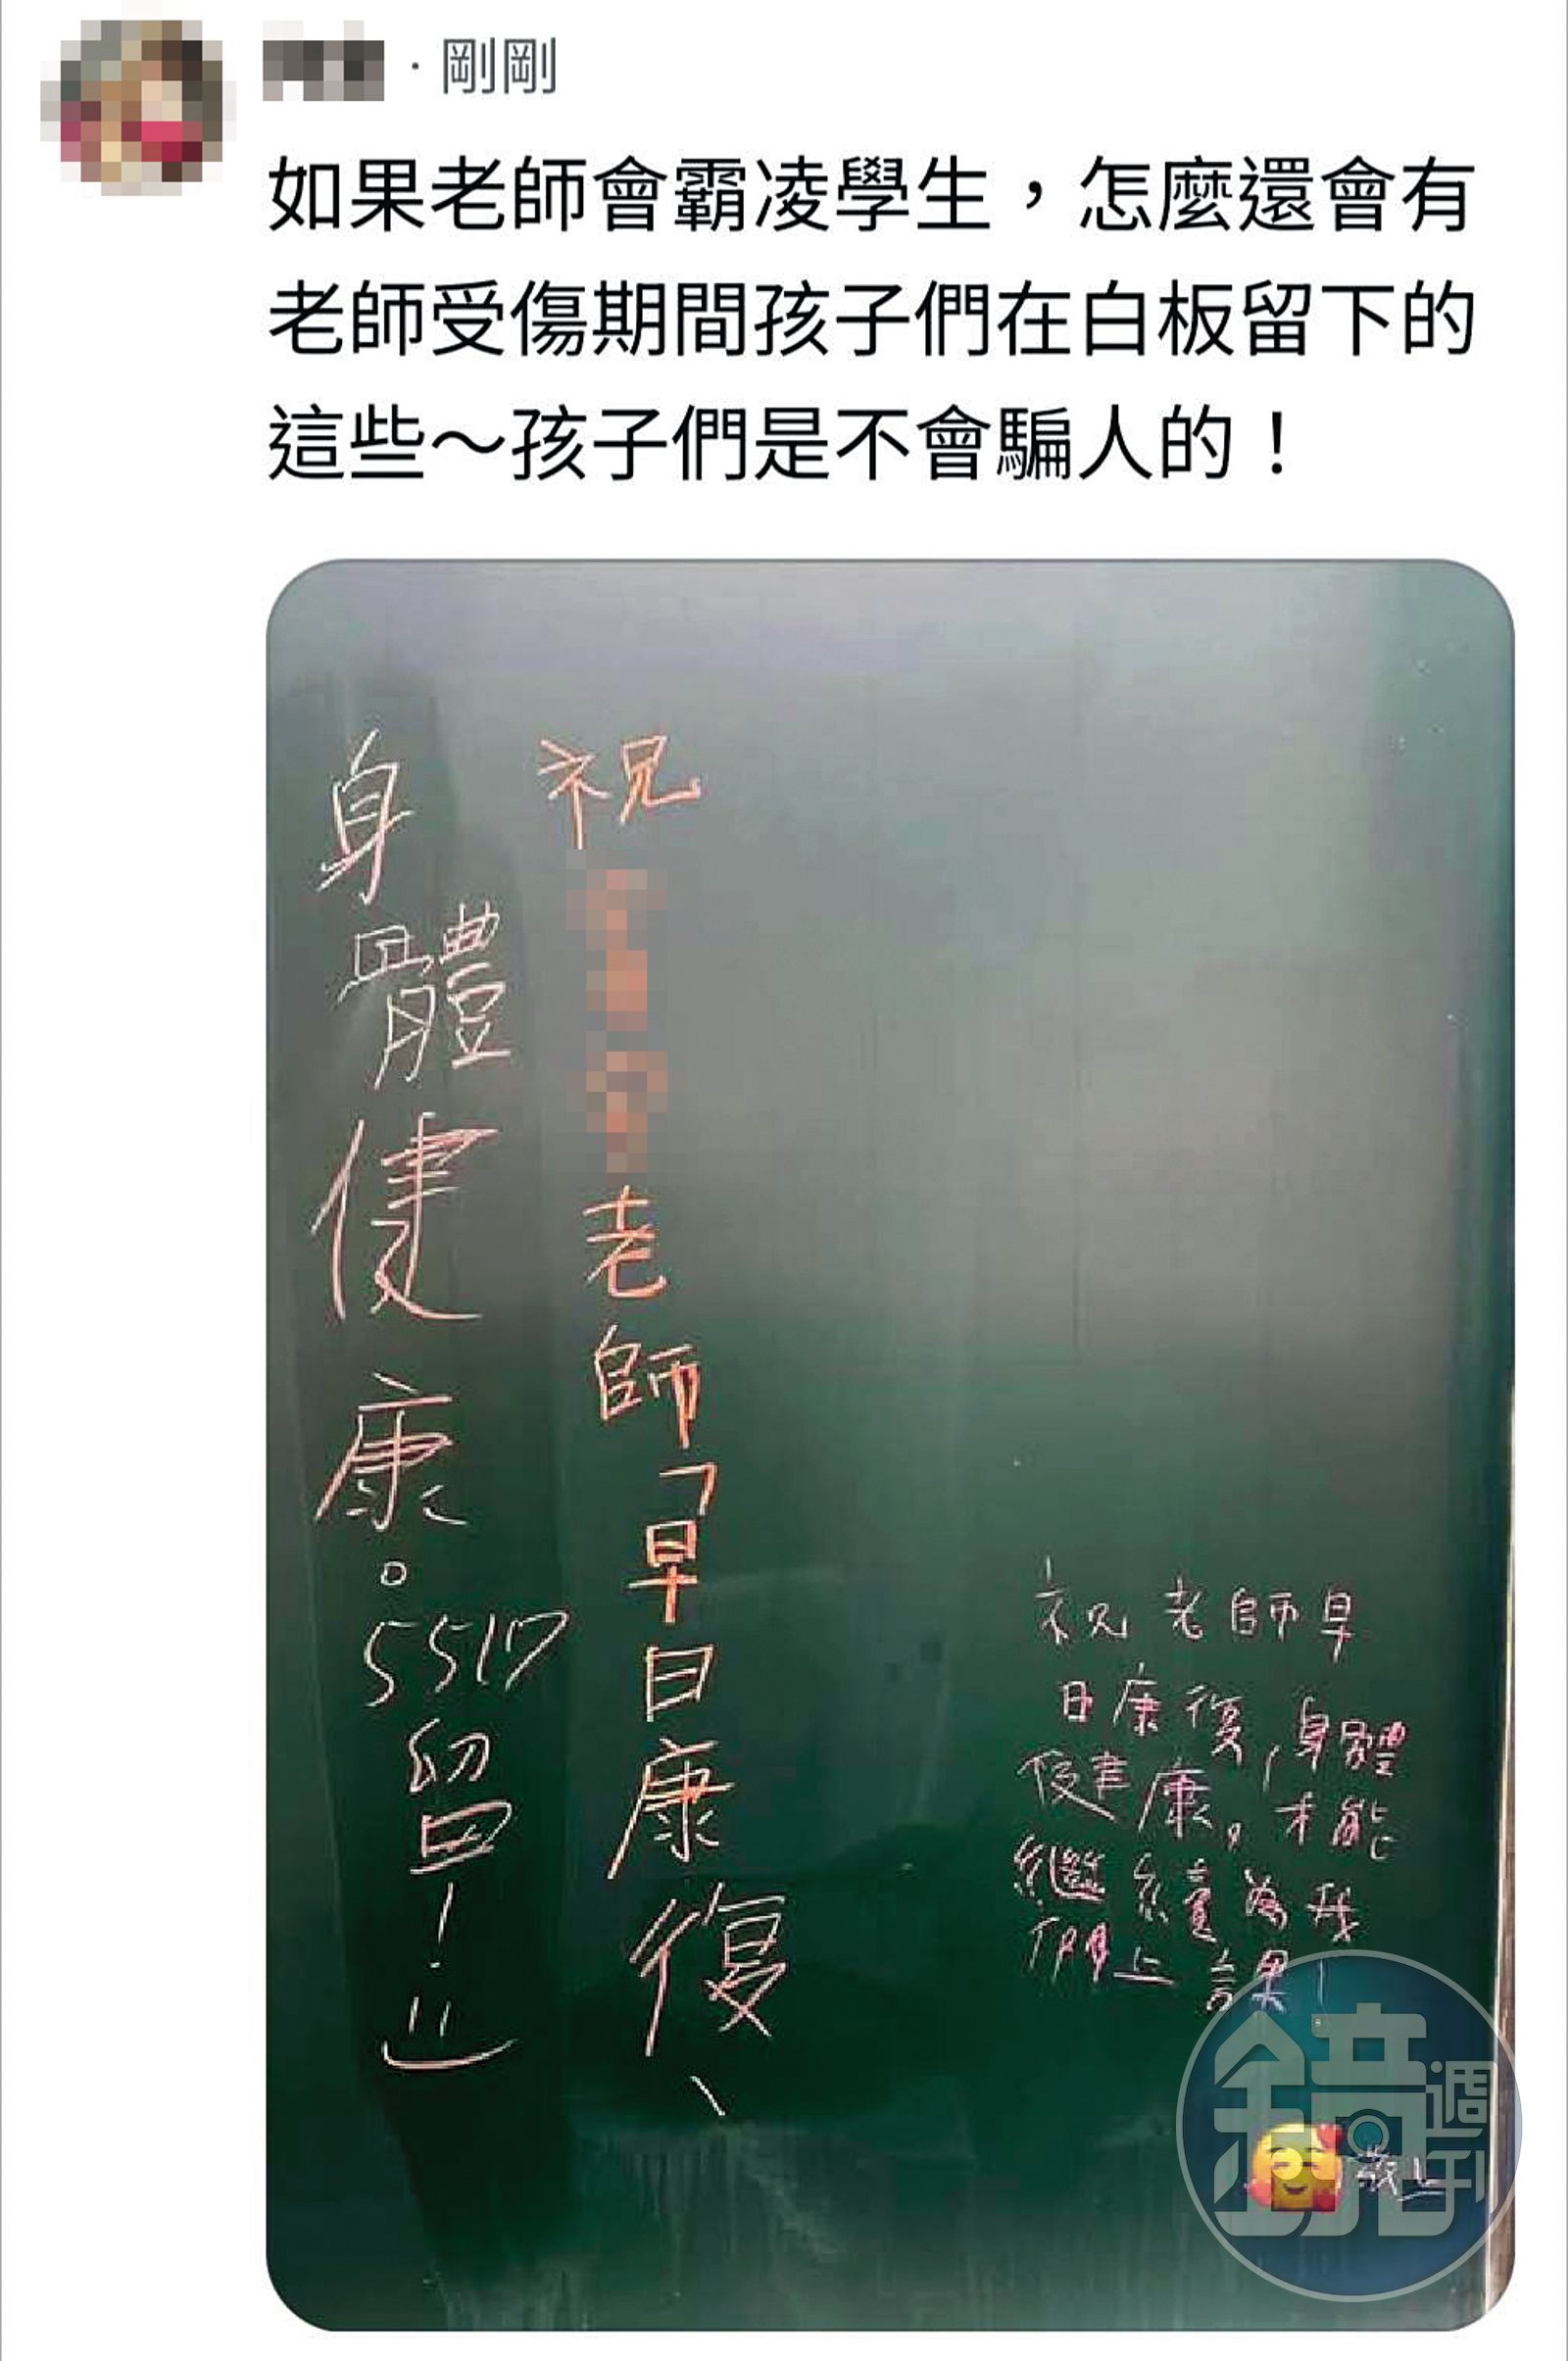 · 剛剛
如果老師會霸凌學生，怎麼還會有
老師受傷期間孩子們在白板留下的
這些～孩子們是不會騙人的！
祝
老師「早日康復、
身體健康。5517留！:)
祝老師早
日康復，身體
健康，才能
繼續為我
們上課！
敬上
鏡週刊